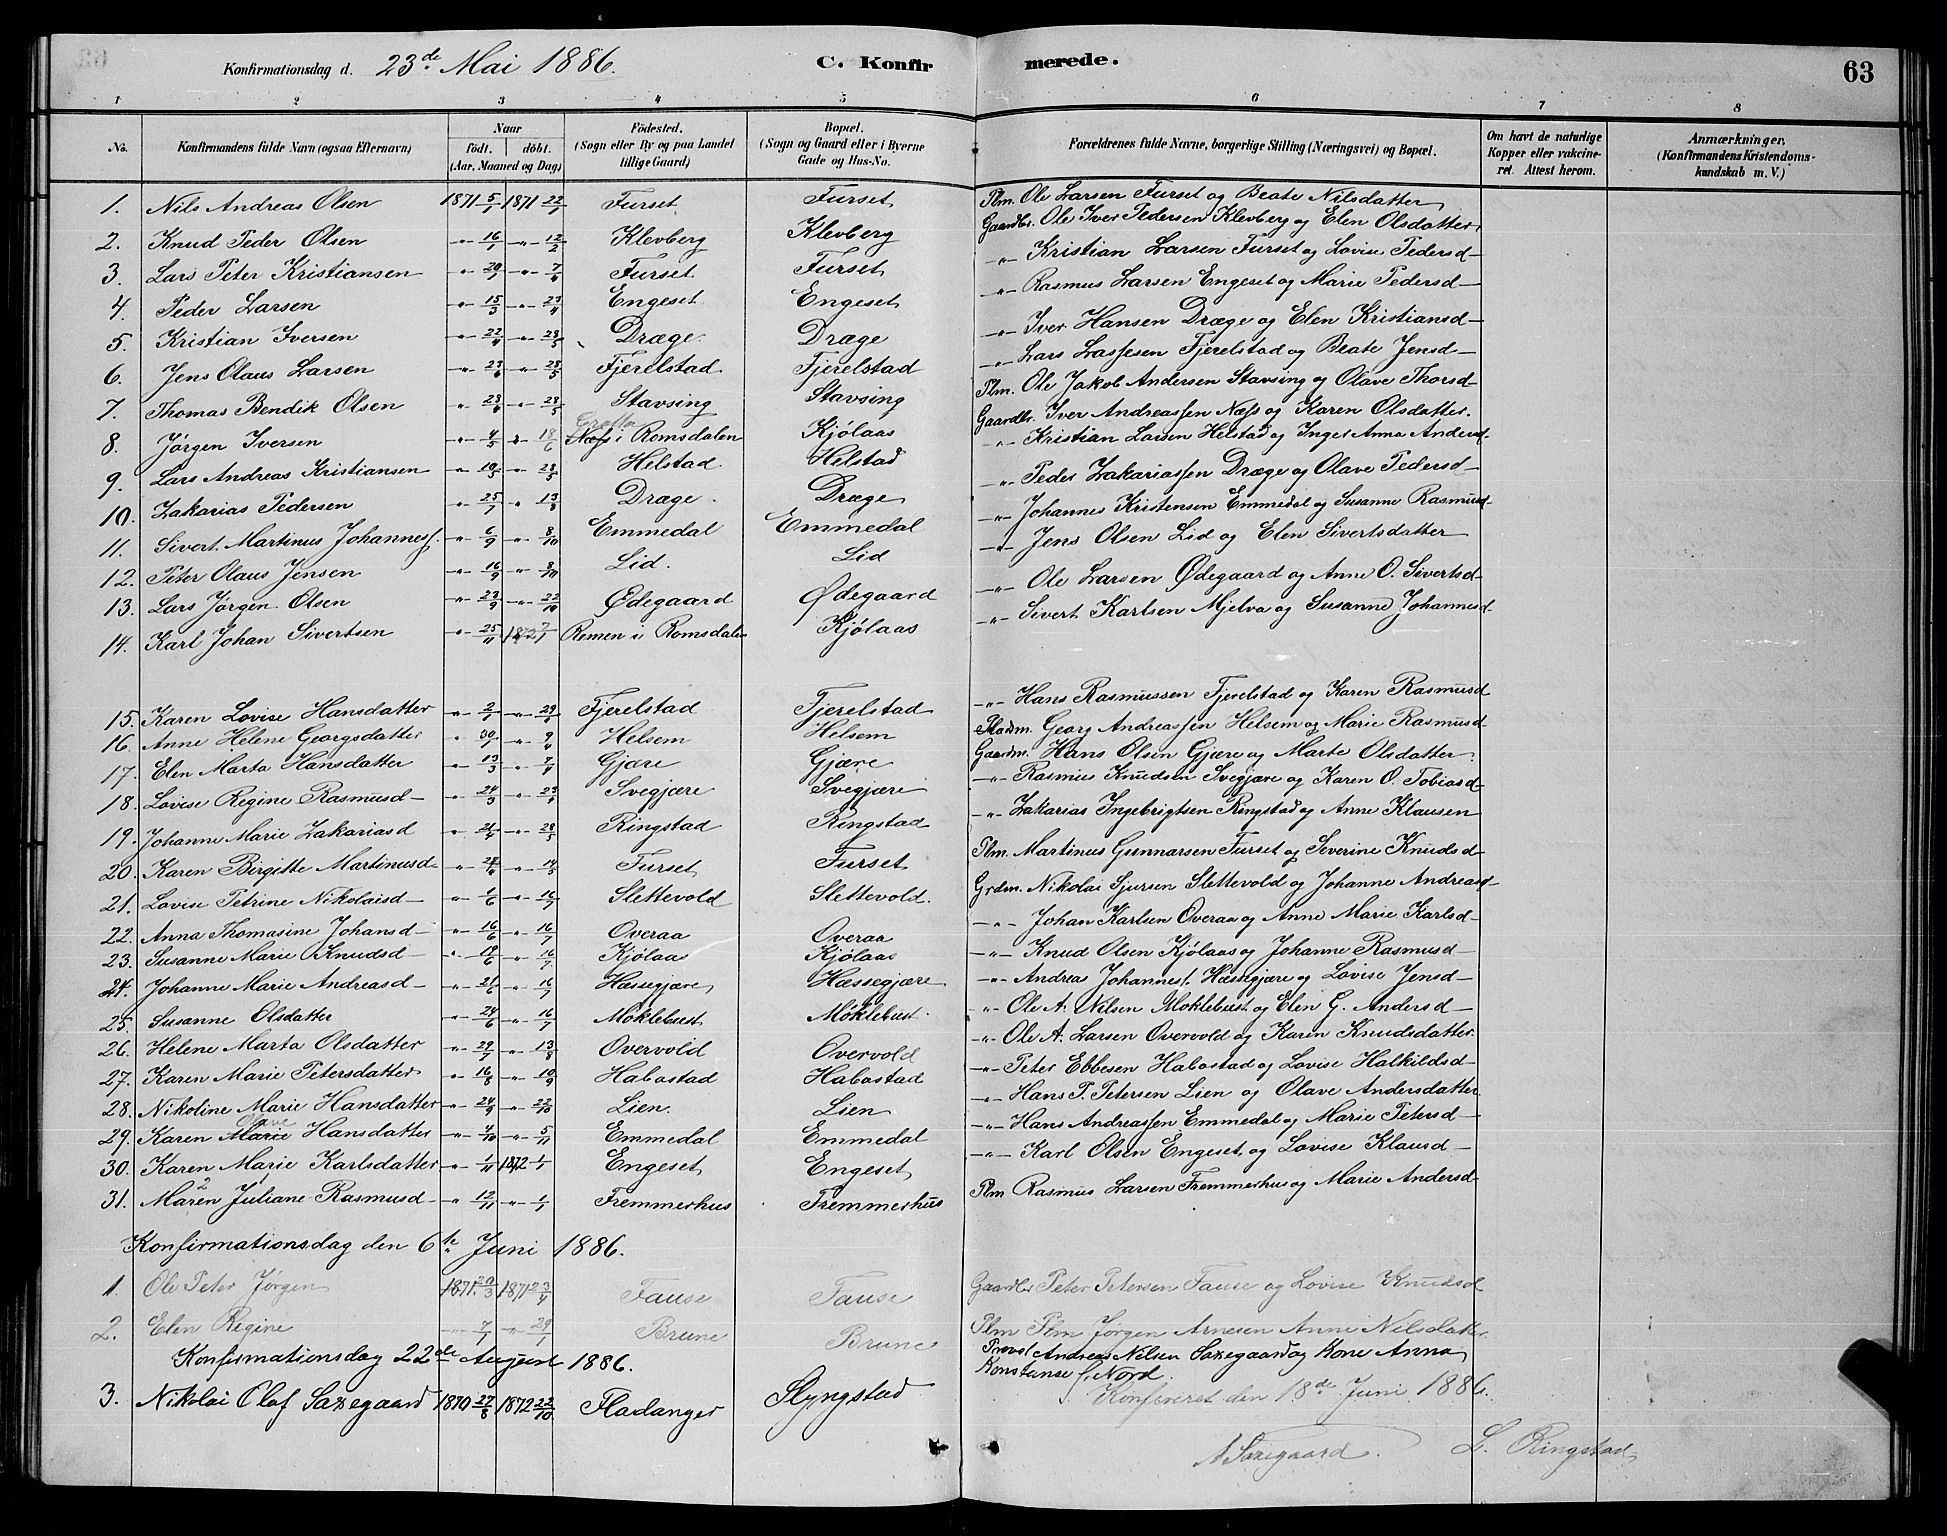 Konfirmationsdag d. 23de Mai 1886. C. Konfirmerede. 63
1 2 3 4 5 6 7 8
No. Konfirmandens fulde Navn (ogsaa Efternavn) Naar födt. döbt. (Aar, Maaned og Dag) Födested. (Sogn eller By og paa Landet tillige Gaard) Bopæl. (Sogn og Gaard eller i Byerne Gade og Hus-No. Forældrenes fulde Navne, borgerlige Stilling (Næringsvei) og Bopæl. Om havt de naturlige Kopper eller vakcineret. Attest herom. Anmærkninger. (Konfirmandens Kristendomskundskab m. V.)
1. Nils Andreas Olsen 1871 5/1 1871 22/1 Furset Furset Plm. Ole Larsen Furset og Beate Nilsdatter
2. Knud Peder Olsen -"- 16/1 -"- 12/2 Klevberg Klevberg Gaardbr. Ole Iver Pedersen Klevberg og Elen Olsdatter
3. Lars Peter Kristiansen -"- 20/1 -"- 7/4 Furset Furset -"- Kristian Larsen Furset og Lovise Pedersd-
4. Peder Larsen -"- 15/3 -"- 23/4 Engeset Engeset -"- Rasmus Larsen Engeset og Marie Pedersd-
5. Kristian Iversen -"- 22/4 -"- 28/5 Dræge Dræge -"- Iver Hansen Dræge og Elen Kristiansd-
6. Jens Olaus Larsen -"- 23/4 -"- 28/5 Fjerelstad Fjerelstad -"- Lars Lassesen Fjerelstad og Beate Jensd-
7. Thomas Bendik Olsen -"- 23/4 -"- 28/5 Stavsing Stavsing Plm. Ole Jakob Andersen Stavsing og Olave Thorsd-
8. Jørgen Iversen -"- 4/5 -"- 18/6 Gretta Næss i Romsdalen Kjølaas Gaardbr. Iver Andreassen Næss og Karen Olsdatter.
9. Lars Andreas Kristiansen -"- 10/5 -"- 28/5 Helstad Helstad -"- Kristian Larsen Helstad og Inger Anna Andersd-
10. Zakarias Pedersen -"- 25/7 -"- 13/8 Dræge Dræge -"- Peder Zakariassen Dræge og Olave Pedersd-
11. Sivert Martinus Johannesf. -"- 6/9 -"- 8/10 Emmedal Emmedal -"- Johannes Kristensen Emmedal og Susanne Rasmusd-
12. Peter Olaus Jensen -"- 16/9 -"- 8/10 Lid. Lid -"- Jens Olsen Lid og Elen Sivertsdatter
13. Lars Jørgen Olsen -"- 23/9 -"- 22/10 Ødegaard Ødegaard -"- Ole Larsen Ødegaard og Anne O. Sivertsd-
14. Karl Johan Sivertsen -"- 25/11 1872 7/1 Remen i Romsdalen Kjølaas -"- Sivert Karlsen Mjelva og Susanne Johannesd
15. Karen Lovise Hansdatter -"- 2/1 -"- 29/1 Fjerelstad Fjerelstad -"- Hans Rasmussen Fjerelstad og Karen Rasmusd
16. Anne Helene Georgsdatter " 30/1 -"- 9/4 Helsem Helsem Georg Andreassen Helsem og Marie Rasmusd
17. Elen Marta Hansdatter -"- 13/3 -"- 7/4 Gjære Gjære Gaardm. Hans Olsen Gjære og Marte Olsdatter
18. Lovise Regine Rasmusd- -"- 24/3 -"- 23/4 Svegjære Svegjære -"- Rasmus Knudsen Svegjære og Karen O. Tobiasd-
19. Johanne Marie Zakariasd -"- 21/4 -"- 28/5 Ringstad Ringstad -"- Zakarias Ingebrigtsen Ringstad og Anne Klausen
20. Karen Birgitte Martinusd- -"- 24/4 -"- 14/5 Furset Furset Plm. Martinus Gunnarsen Furset og Severine Knudsd
21. Lovise Petrine Nikolaisd- -"- 1/6 -"- 16/7 Slettevold Slettevold. Grdm. Nikolai Sjursen Slettevold og Johanne Andreasd-
22. Anna Thomasine Johansd- -"- 16/6 -"- 16/7 Overaa Overaa -"- Johan Karlsen Overaa og Anne Marie Karlsd-
23. Susanne Marie Knudsd- -"- 19/6 -"- 16/7 Kjølaas Kjølaas -"- Knud Olsen Kjølaas og Johanne Rasmusd-
24. Johanne Marie Andreasd- -"- 21/6 -"- 16/7 Hæssegjære Hæssegjære -"- Andreas Johannesf. Hæssegjære og Lovise Jensd-
25. Susanne Olsdatter -"- 24/6 -"- 16/7 Moklebust Moklebust. -"- Ole A. Nilsen Moklebust og Elen G. Andersd-
26. Helene Marta Olsdatter -"- 29/7 -"- 13/8 Overvold Overvold -"- Ole A. Larsen Overvold og Karen Knudsdatter.
27. Karen Marie Petersdatter -"- 16/8 -"- 10/9 Habostad Habostad -"- Peter Ebbesen Habostad og Lovise Halkildsd-
28. Nikoline Marie Hansdatter -"- 24/9 -"- 22/10 Lien Lien -"- Hans P. Petersen Lien og Olave Andersdatter
29. Karen Marie Olave Hansdatter -"- 4/10 -"- 5/11 Emmedal Emmedal -"- Hans Andreassen Emmedal og Marie Petersd-
30. Karen Marie Karlsdatter -"- 1/11 1872 1/1 Engeset Engeset -"- Karl Olsen Engeset og Lovise Klausd-
31. Maren 2 Juliane Rasmusd- " 12/11 -"- 1/1 Fremmerhus Fremmerhus Plm Rasmus Larsen Fremmerhus og Marie Andersd-
Konfirmationsdag den 6te Juni 1886.
1 Ole Peter Jørgen 1871 20/3 1871 23/4 Fause Fause Gaardbr Peter Petersen Fause og Lovise Knudsd
2. Elen Regine -"- 7/1 -"- 29/1 Brune Brune Plm Plm Jørgen Arnesen Anne Nilsdatter
Konfirmationsdag 22de August 1886.
3. Nikolai Olaf Saxegaard 1870 27/8 1872 22/10 Fladanger Slyngstad Provst Andreas Nilsen Saxegaard og Kone Anna Konstanse f. Nord
Konfereret den 18de Juni 1886.
A Saxegaard. L. Ringstad